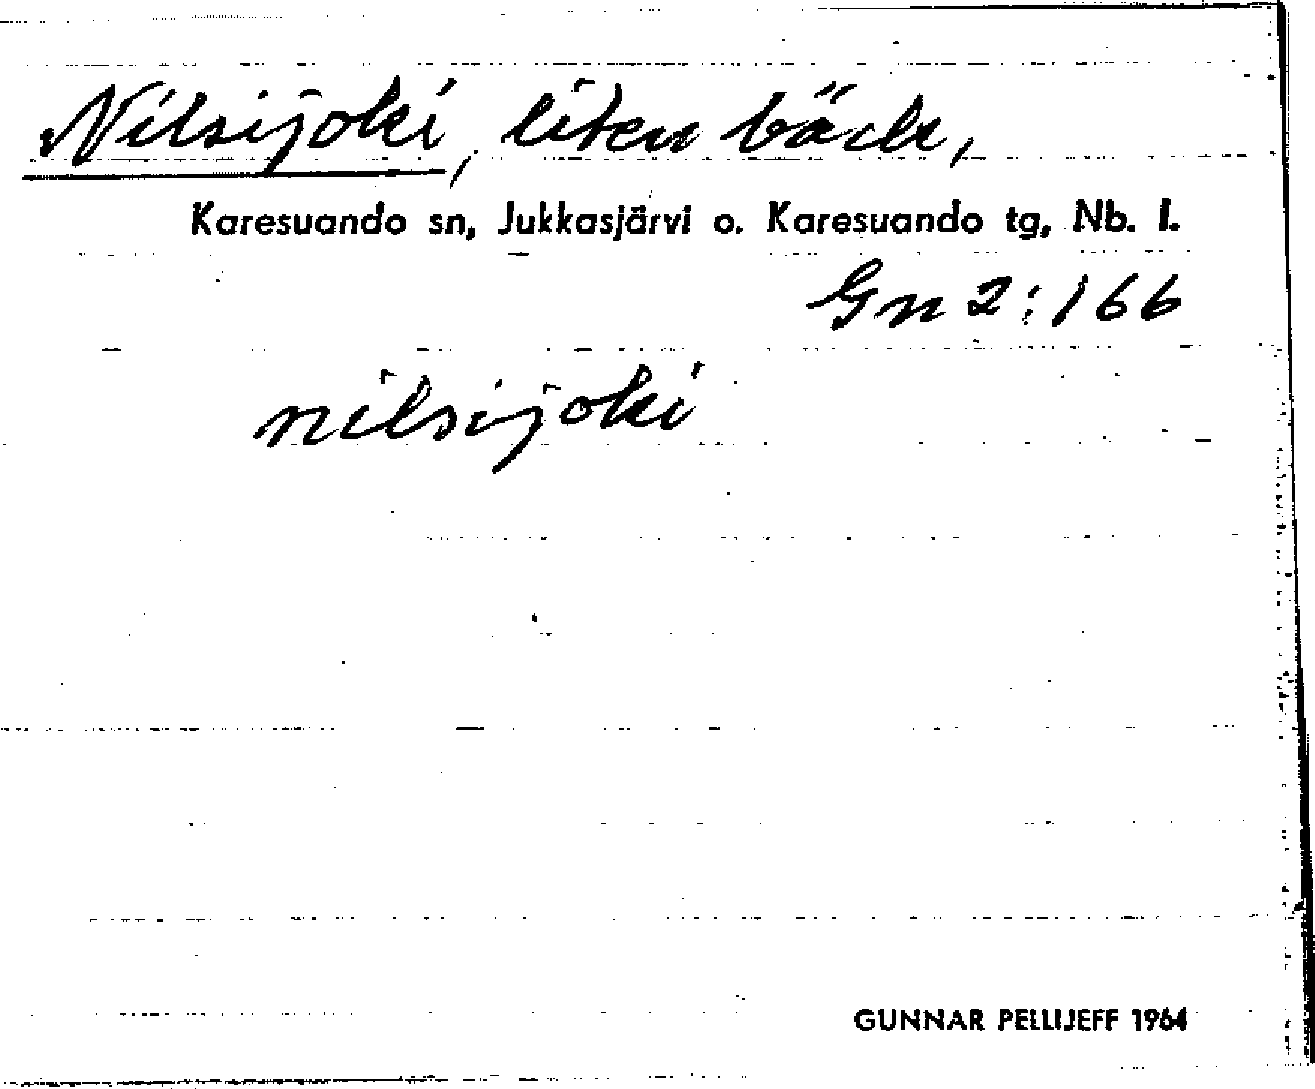 Nilsijoki, liten bäck,
Karesuando sn, Jukkasjärvi o. Karesuando tg, Nb. l.
Gn 2:166
nilsijoki
GUNNAR PELLIJEFF 1964